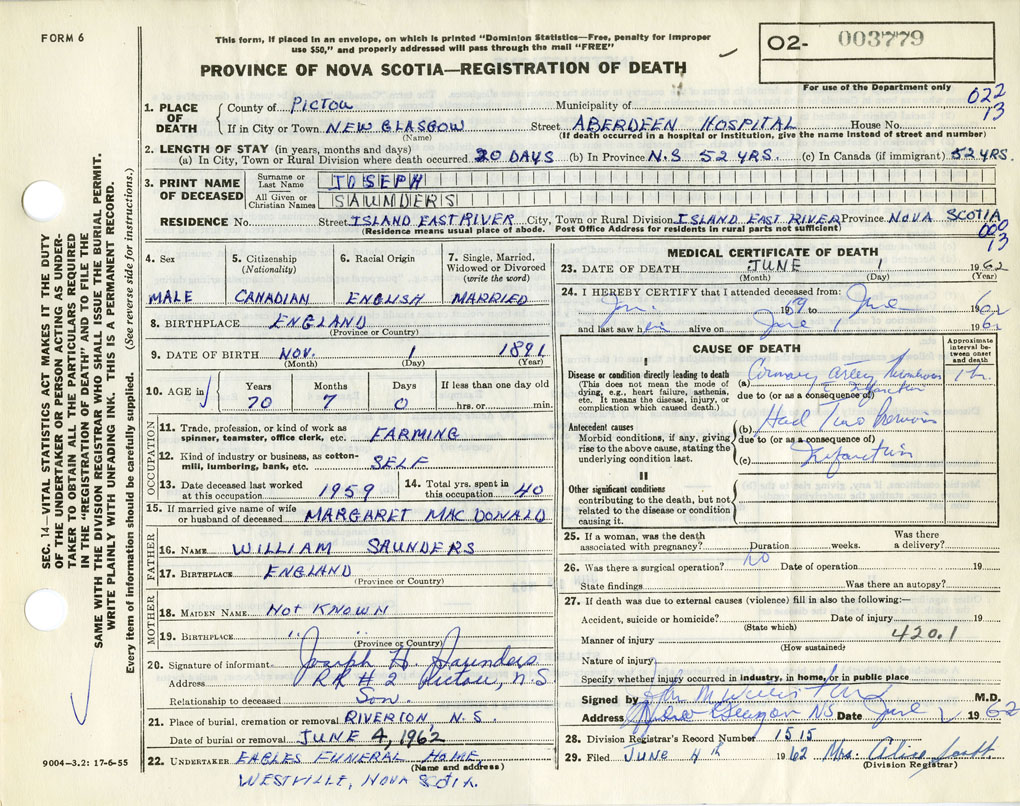 FORM 6
This form, if placed in an envelope, on which is printed "Dominion Statistics—Free, penalty for improper
use $50," and properly addressed will pass through the mail "FREE"
O2- 003779
PROVINCE OF NOVA SCOTIA—REGISTRATION OF DEATH
For use of the Department only
022
13
1. PLACE OF DEATH
County of PICTOU Municipality of
If in City or Town NEW GLASGOW Street ABERDEEN HOSPITAL House No.
(Name) (If death occurred in a hospital or institution, give the name instead of street and number)
2. LENGTH OF STAY (in years, months and days)
(a) In City, Town or Rural Division where death occurred 20 DAYS (b) In Province N.S 52 YRS. (c) In Canada (if immigrant) 52 YRS.
3. PRINT NAME OF DECEASED
Surname or Last Name JOSEPH
All Given or Christian Names SAUNDERS
RESIDENCE No. Street ISLAND EAST RIVER City, Town or Rural Division ISLAND EAST RIVER Province NOVA SCOTIA
(Residence means usual place of abode. Post Office Address for residents in rural parts not sufficient)
000
13
4. Sex
MALE
5. Citizenship
(Nationality)
CANADIAN
6. Racial Origin
ENGLISH
7. Single, Married,
Widowed or Divorced
(write the word)
MARRIED
8. BIRTHPLACE ENGLAND
(Province or Country)
9. DATE OF BIRTH NOV. 1 1891
(Month) (Day) (Year)
10. AGE in
Years Months Days If less than one day old
70 7 0 hrs. or min.
OCCUPATION
11. Trade, profession, or kind of work as
spinner, teamster, office clerk, etc. FARMING
12. Kind of industry or business, as cotton-
mill, lumbering, bank, etc. SELF
13. Date deceased last worked
at this occupation 1959
14. Total yrs. spent in
this occupation 40
15. If married give name of wife
or husband of deceased MARGARET MAC DONALD
FATHER
16. NAME WILLIAM SAUNDERS
17. BIRTHPLACE ENGLAND
(Province or Country)
MOTHER
18. MAIDEN NAME NOT KNOWN
19. BIRTHPLACE " "
(Province or Country)
20. Signature of informant Joseph H. Saunders
Address RR # 2 Pictou, N.S
Relationship to deceased Son.
21. Place of burial, cremation or removal RIVERTON, N.S.
Date of burial or removal JUNE 4, 1962
22. UNDERTAKER EAGLES FUNERAL HOME,
(Name and address)
WESTVILLE, NOVA SCOTIA.
MEDICAL CERTIFICATE OF DEATH
23. DATE OF DEATH JUNE 1 1962
(Month) (Day) (Year)
24. I HEREBY CERTIFY that I attended deceased from:
Jan. 1959 to June 1962
and last saw him alive on June 1 1962
CAUSE OF DEATH
Approximate
interval be-
tween onset
and death
I
Disease or condition directly leading to death
(This does not mean the mode of
dying, e.g., heart failure, asthenia,
etc. It means the disease, injury, or
complication which caused death.)
(a) 1 hr.
due to (or as a consequence of)
Antecedent causes
Morbid conditions, if any, giving
rise to the above cause, stating the
underlying condition last.
(b) Had Two Previous
due to (or as a consequence of)
(c) Infarction
II
Other significant conditions
contributing to the death, but not
related to the disease or condition
causing it.
25. If a woman, was the death
associated with pregnancy? Duration weeks. Was there
a delivery?
26. Was there a surgical operation? no Date of operation 19
State findings Was there an autopsy?
27. If death was due to external causes (violence) fill in also the following:—
Accident, suicide or homicide? Date of injury 19
(State which)
Manner of injury 420.1
(How sustained)
Nature of injury
Specify whether injury occurred in industry, in home, or in public place
Signed by M.D.
Address New Glasgow NS Date June 1962
28. Division Registrar's Record Number 1515
29. Filed JUNE 4th 1962 Mrs. Alice
(Division Registrar)
SEC. 14—VITAL STATISTICS ACT MAKES IT THE DUTY
OF THE UNDERTAKER OR PERSON ACTING AS UNDER-
TAKER TO OBTAIN ALL THE PARTICULARS REQUIRED
IN THE "REGISTRATION OF DEATH" AND TO FILE THE
SAME WITH THE DIVISION REGISTRAR WHO SHALL ISSUE THE BURIAL PERMIT.
WRITE PLAINLY WITH UNFADING INK. THIS IS A PERMANENT RECORD.
Every item of information should be carefully supplied. (See reverse side for instructions.)
9004-3.2: 17-6-55